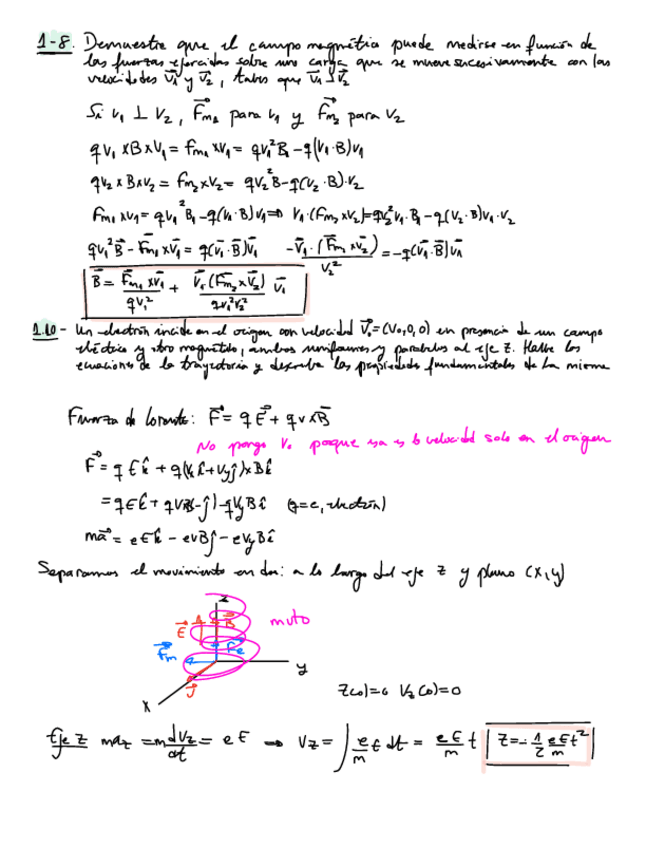 1-8. Demuestre que el campo magnético puede medirse en función de
las fuerzas ejercidas sobre una carga que se mueve sucesivamente con las
velocidades v⃗₁ y v⃗₂, tales que v⃗₁ ⊥ v⃗₂
Si v₁ ⊥ v₂, F⃗m₁ para v₁ y F⃗m₂ para v₂
qv₁ × B × v₁ = Fm₁ × v₁ = qv₁²B₁ - q(v₁·B)v₁
qv₂ × B × v₂ = Fm₂ × v₂ = qv₂²B - q(v₂·B)·v₂
Fm₁ × v₁ = qv₁²B₁ - q(v₁·B)v₁ ⇒ v₁·(Fm₂ × v₂) = qv₂²v₁·B₁ - q(v₂·B)v₁·v₂
qv₁²B⃗ - F⃗m₁ × v⃗₁ = q(v⃗₁·B⃗)v⃗₁ -v⃗₁·(F⃗m₂ × v⃗₂)/v₂² = -q(v⃗₁·B⃗)v⃗₁
B⃗ = F⃗m₁ × v⃗₁/qv₁² + v⃗₁·(F⃗m₂ × v⃗₂)/qv₁²v₂² v⃗₁
1.10- Un electrón incide en el origen con velocidad v⃗₀ = (v₀,0,0) en presencia de un campo
eléctrico y otro magnético, ambos uniformes y paralelos al eje z. Halle las
ecuaciones de la trayectoria y describa las propiedades fundamentales de la misma
Fuerza de Lorentz: F⃗ = qE⃗ + qv × B⃗
No pongo v₀ porque esa es la velocidad solo en el origen
F⃗ = qEk̂ + q(vₓî + vyĵ) × Bk̂
= qEk̂ + qvₓB(-ĵ) - qvyBî (q=e, electrón)
ma⃗ = eEk̂ - evBĵ - evyBî
Separamos el movimiento en dos: a lo largo del eje z y plano (x,y)
z
E⃗ B⃗
F⃗m Fe
y
x
z(0)=0 vz(0)=0
Eje z maz = m dvz/dt = eE → vz = ∫ e/m E dt = eE/m t z = -1/2 eE/m t²